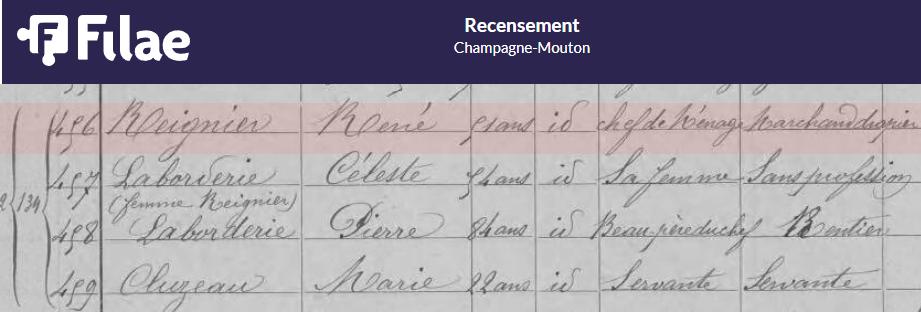 Filae
Recensement
Champagne-Mouton
456 Reignier René 51 ans id chef de Ménage Marchand drapier
457 Laborderie Céleste 54 ans id Sa femme Sans profession
(femme Reignier)
2 134
458 Laborderie Pierre 84 ans id Beau-père du chef Rentier
459 Cluzeau Marie 22 ans id Servante Servante